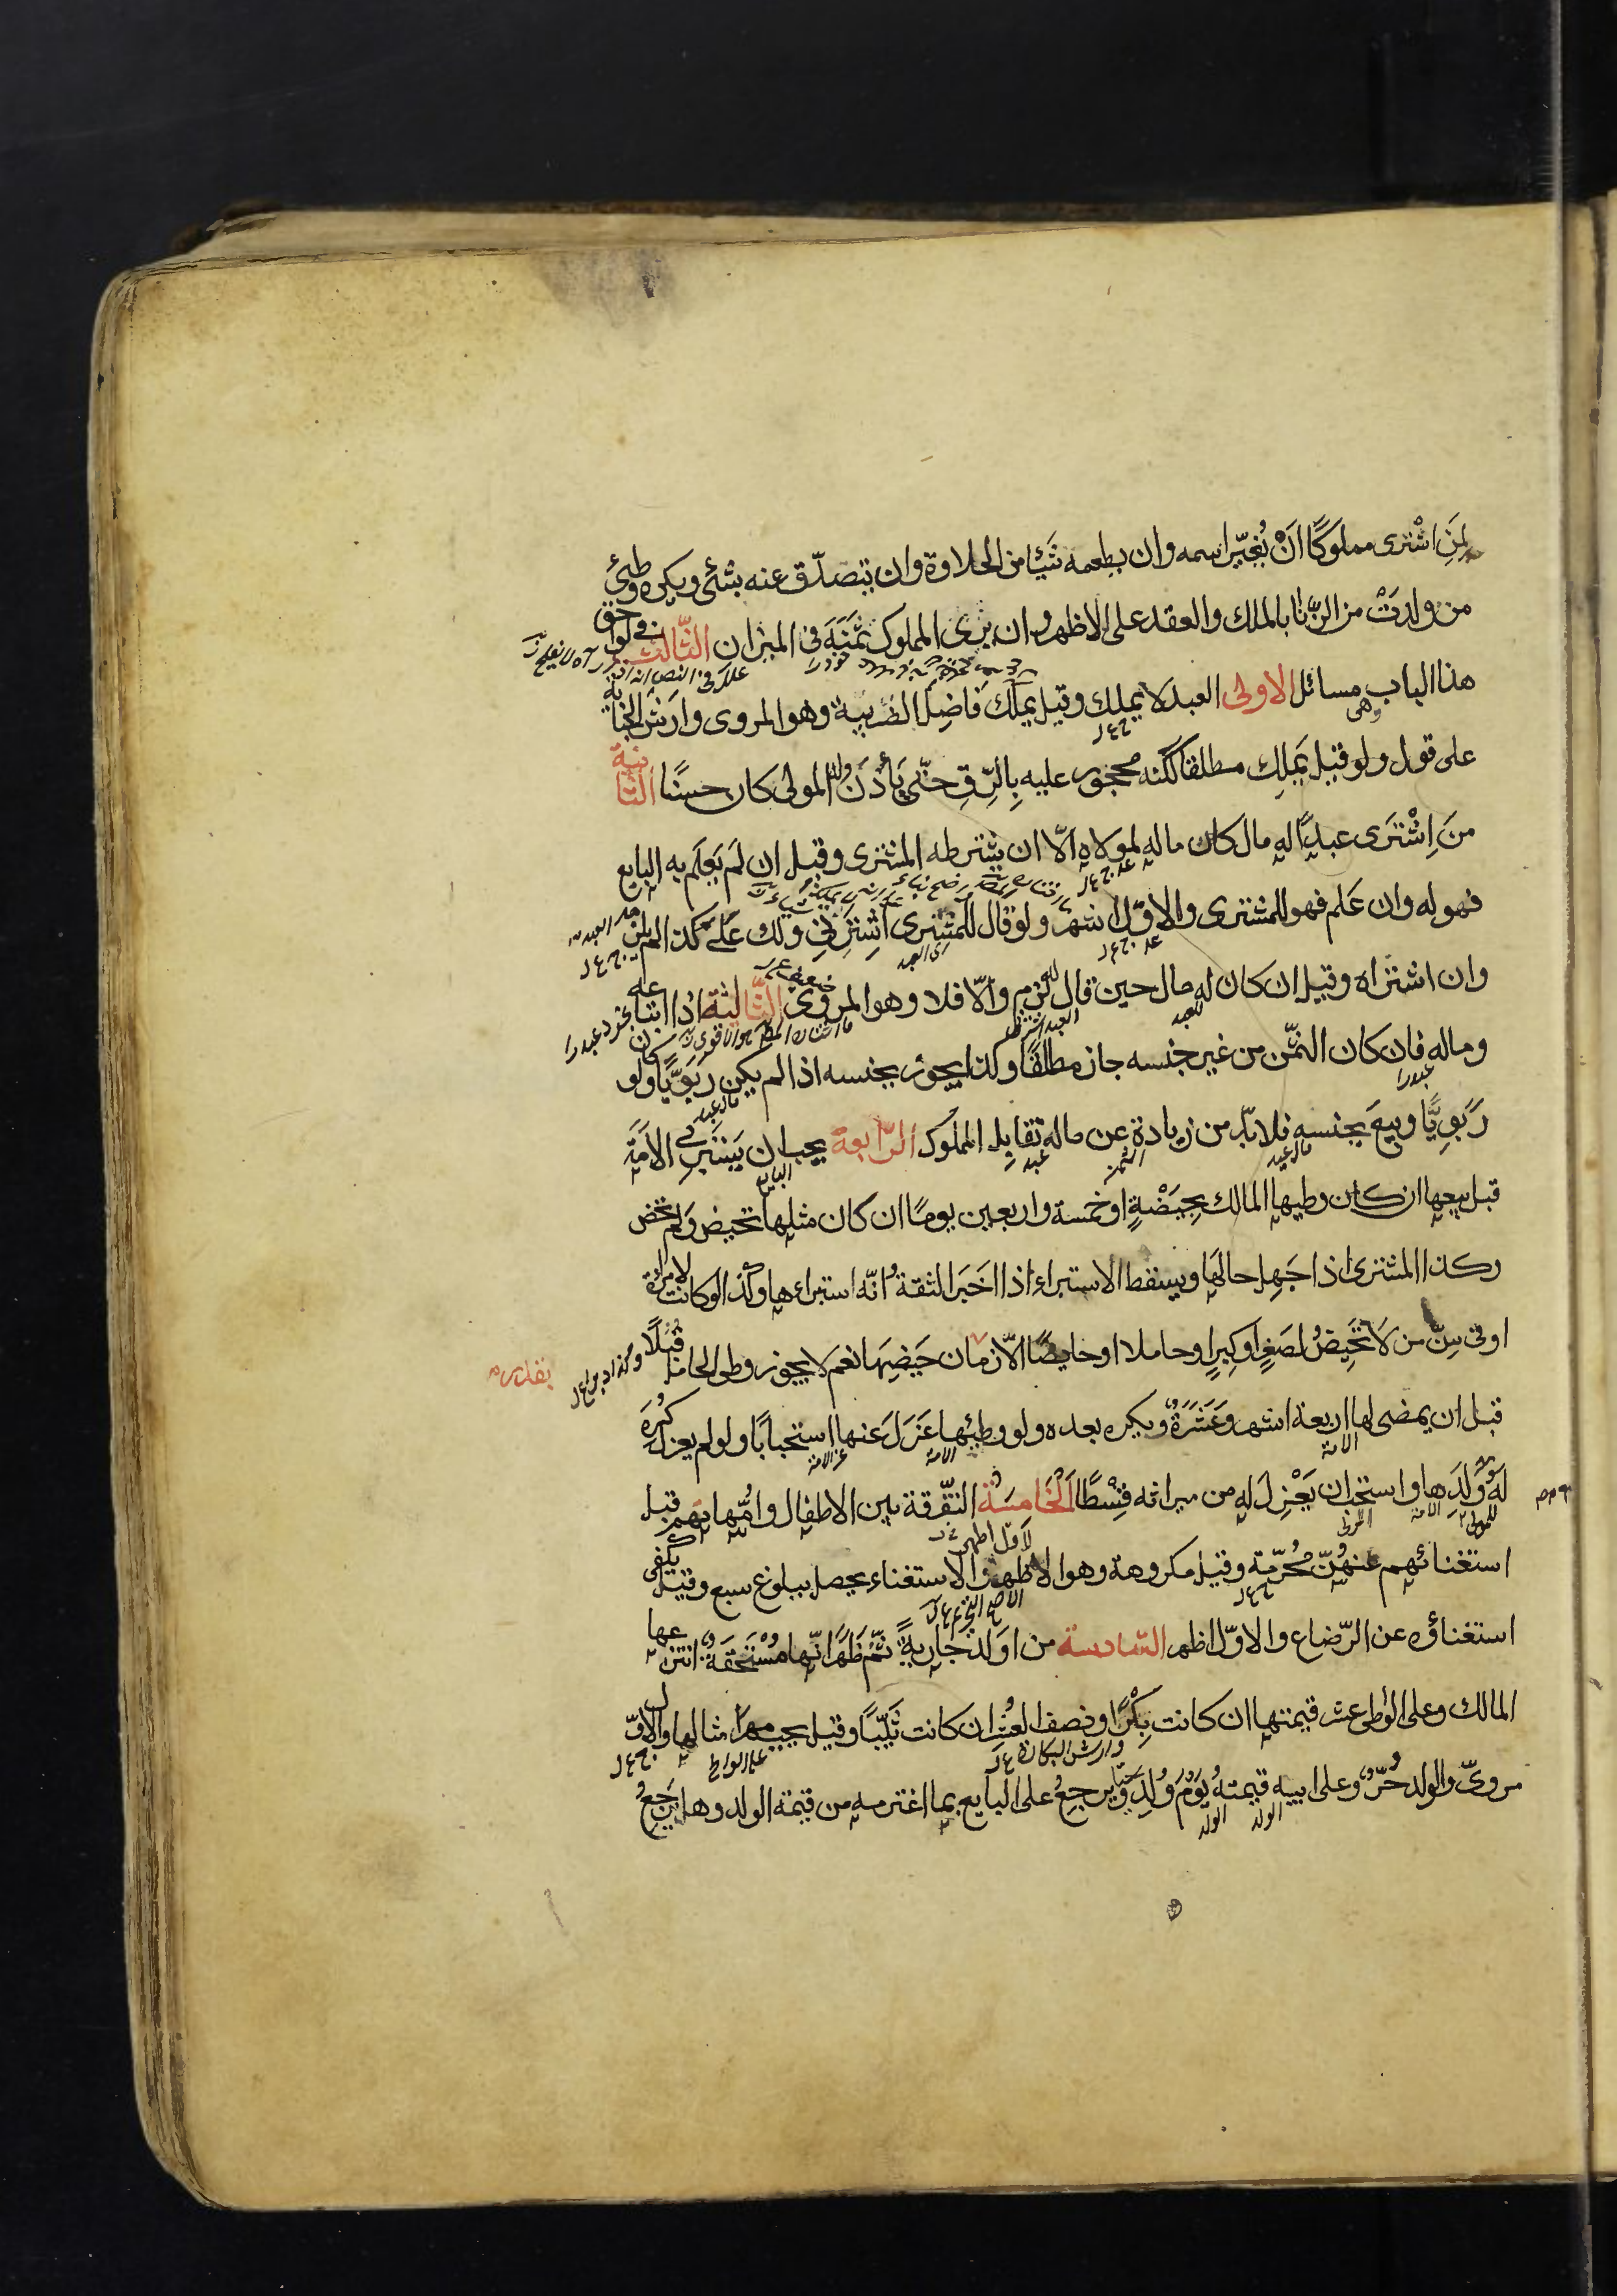 لمن اشترى مملوكًا ان يُغيّر اسمه وان يطعمه شيئا من الحلاوة وان يتصدّق عنه بشئ ويكره وطئ
من ولدت من الزّنا بالملك والعقد على الاظهر وان يرى المملوك ثمنَهَ فى الميزان الثّالث فى لواحق
هذا الباب وهى مسائل الاولى العبد لا يملك وقيل يملك فاضِل الضريبة وهو المروى وارش الجناية
على قول ولو قيل يَملِك مطلقا لكنه محجور عليه بِالرِّقِ حتّى يَأذَنَ له المولى كان حسنًا الثّانية
مَن اِشْتَرى عبدًا له مال كان ماله لمولاه الّا ان يشترطه المشترى وقيل ان لم يَعلَم به البايع
فهو له وان عَلم فهو للمشترى والاوّل اشهر ولو قال للمشترى اشترنى ولك علىّ كذا لم يلزم
وان اشتراه وقيل ان كان له مال حين قال له لزم والّا فلا وهو المروى الثّالثة اذا ابتاعه
وماله فان كان الثمن من غير جنسه جاز مطلقًا وكذا يجوز بجنسه اذا لم يكن رَبَوِيًّا ولو كان
رَبَوِيًّا وبِيعَ بجنسه فلابدّ من زيادةٍ عن ماله تقابل المملوك الرّابعة يجب ان يَستَبرِئ الاَمَة
قبل بيعها ان كان وطيها المالك بِحِيَضْةٍ او خمسة واربعين يومًا ان كان مثلها تحيض ولم تحض
وكذا المشترى اذا جَهِل حالَها ويسقط الاستبراء اذا اخبَرَ الثقة انّه استبراءها وكذا لو كانت لامراة
او فى سِنّ من لا تَحِيضُ لصَغِرٍ او كِبِرٍ او حاملا او حايضًا الّا زمان حَيضِهَا نعم لا يجوز وطى الحامل قُبُلًا
قبل ان يمضى لها اربعة اشهر وعَشَرَةٌ ويكره بعده ولو وطيها عَزَلَ عنها استحبابًا ولو لم يعزل كُرِهَ
له بَيع وَلَدِها واستحب ان يَعْزِلَ له من ميراثه قِسْطًا الخامِسَة التفرقة بين الاطفال وامّهاتهم قبل
استغنائهم عنهُنّ مُحرّمة وقيل مكروهة وهو الاظهر والاستغناء يحصل ببلوغ سبع وقيل يكفى
استغناؤه عن الرّضاع والاوّل اظهر السّادسة من اولد جارِيةً ثُمّ ظَهَرَ انّها مُسْتَحَقَةٌ انتزعها
المالك وعلى الواطى عشر قيمتها ان كانت بِكْرًا ونصف العُشر ان كانت ثيّبًا وقيل يجب مهر امثالها والاوّل
مروىّ والولد حُرّ وعلى ابيه قيمتهُ يَوْمَ وُلِدَ حيّا ويرجِعُ على البايع بما اغترمه من قيمة الولد وهل يَرجِعُ